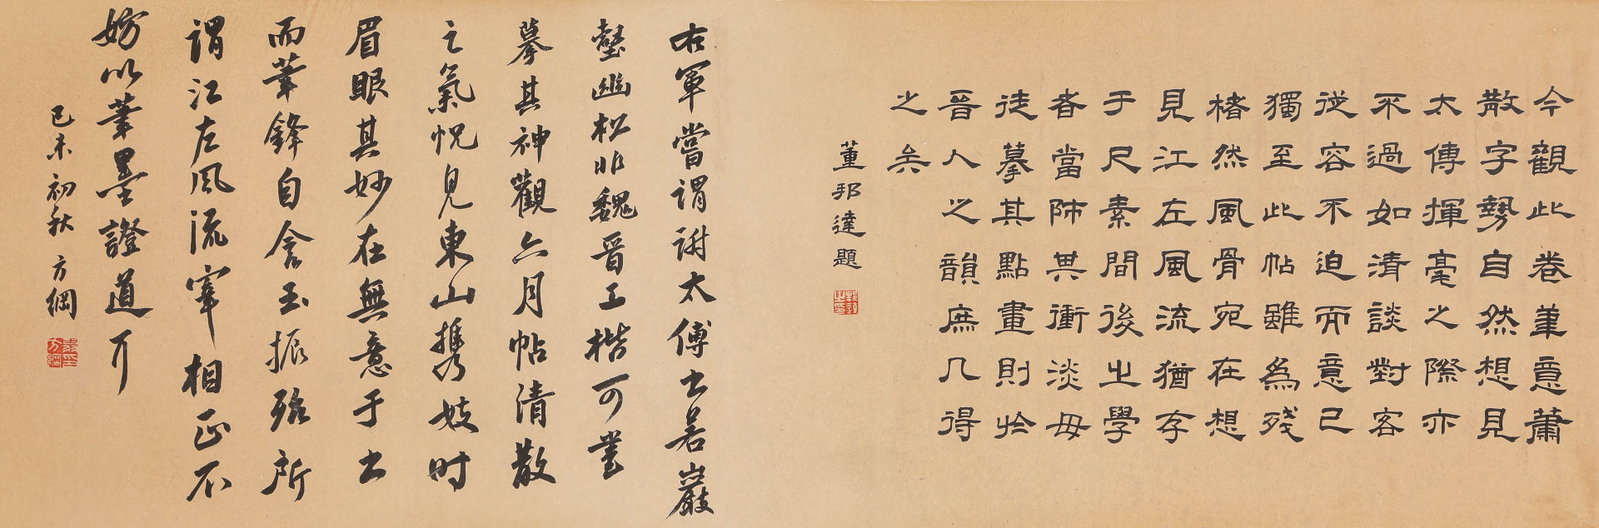 今觀此卷筆意蕭
散字勢自然想見
太傅揮毫之際亦
不過如清談對客
從容不迫而意已
獨至此帖雖為殘
楮然風骨宛在想
見江左風流猶存
于尺素間後之學
者當師其衝淡毋
徒摹其點畫則於
晉人之韻庶几得
之矣
董邦達題
右軍嘗謂謝太傅書若巖
壑幽松非魏晉工楷可
摹其神觀六月帖清散
之氣怳見東山攜妓時
眉眼其妙在無意于書
而筆鋒自含玉振殆所
謂江左風流宰相正不
妨以筆墨證道耳
己未初秋 方綱